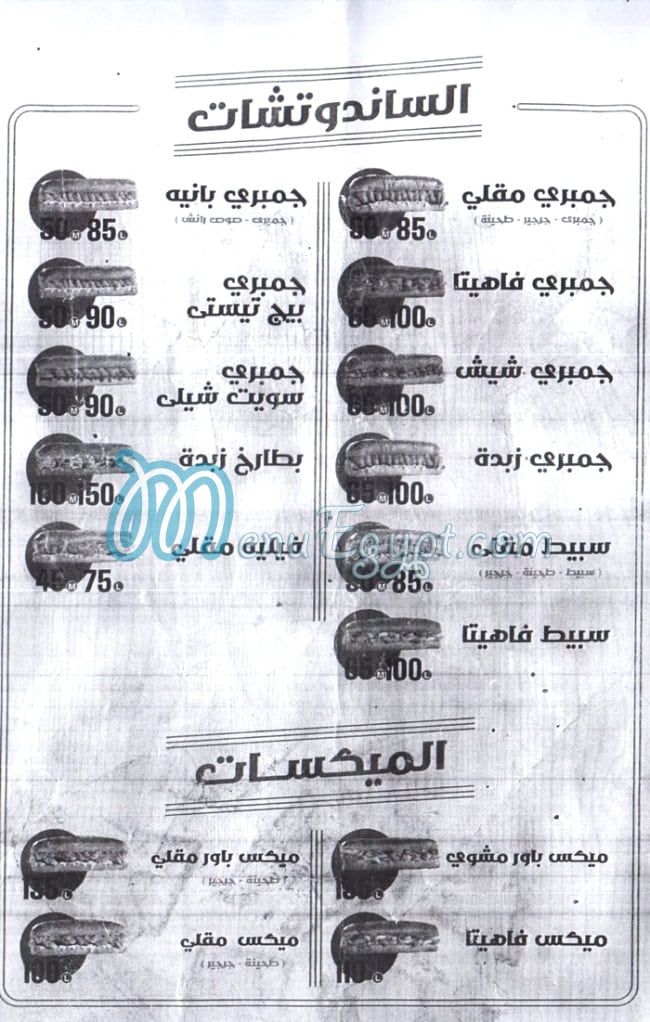 الساندوتشات
جمبري مقلي
( جمبرى - جرجير - طحينة )
85 L
جمبري فاهيتا
65 M 100 L
جمبري شيش
65 M 100 L
جمبري زبدة
65 M 100 L
سبيط مقلى
( سبيط - طحينة - جرجير )
85 L
سبيط فاهيتا
65 M 100 L
جمبري بانيه
( جمبرى - صوص رانش )
50 M 85 L
جمبري
بيج تيستى
50 M 90 L
جمبري
سويت شيلى
50 M 90 L
بطارخ زبدة
100 M 150 L
فيليه مقلي
45 M 75 L
MenuEgypt.com
الميكسات
ميكس باور مشوي
ميكس فاهيتا
110 L
ميكس باور مقلي
( طحينة - جرجير )
135 L
ميكس مقلي
( طحينة - جرجير )
100 L